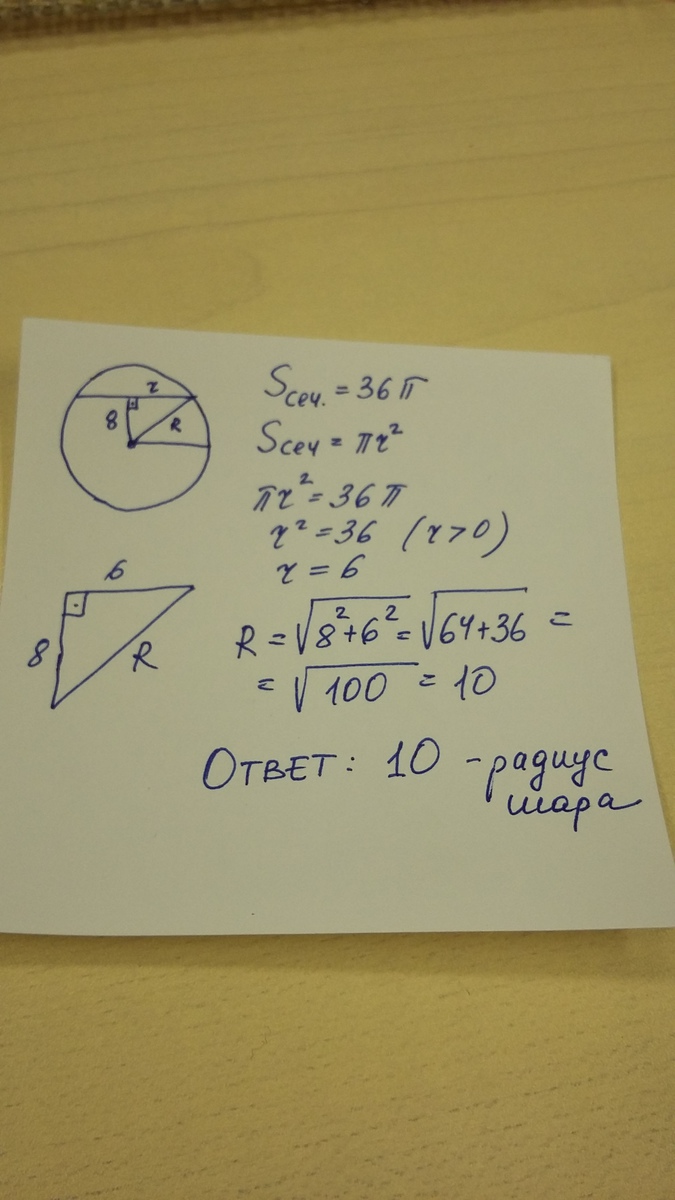 r
8
R
Sсеч. = 36π
Sсеч = πr²
πr² = 36π
r² = 36 (r > 0)
r = 6
6
8
R
R = √8²+6² = √64+36 =
= √100 = 10
Ответ: 10 - радиус
шара